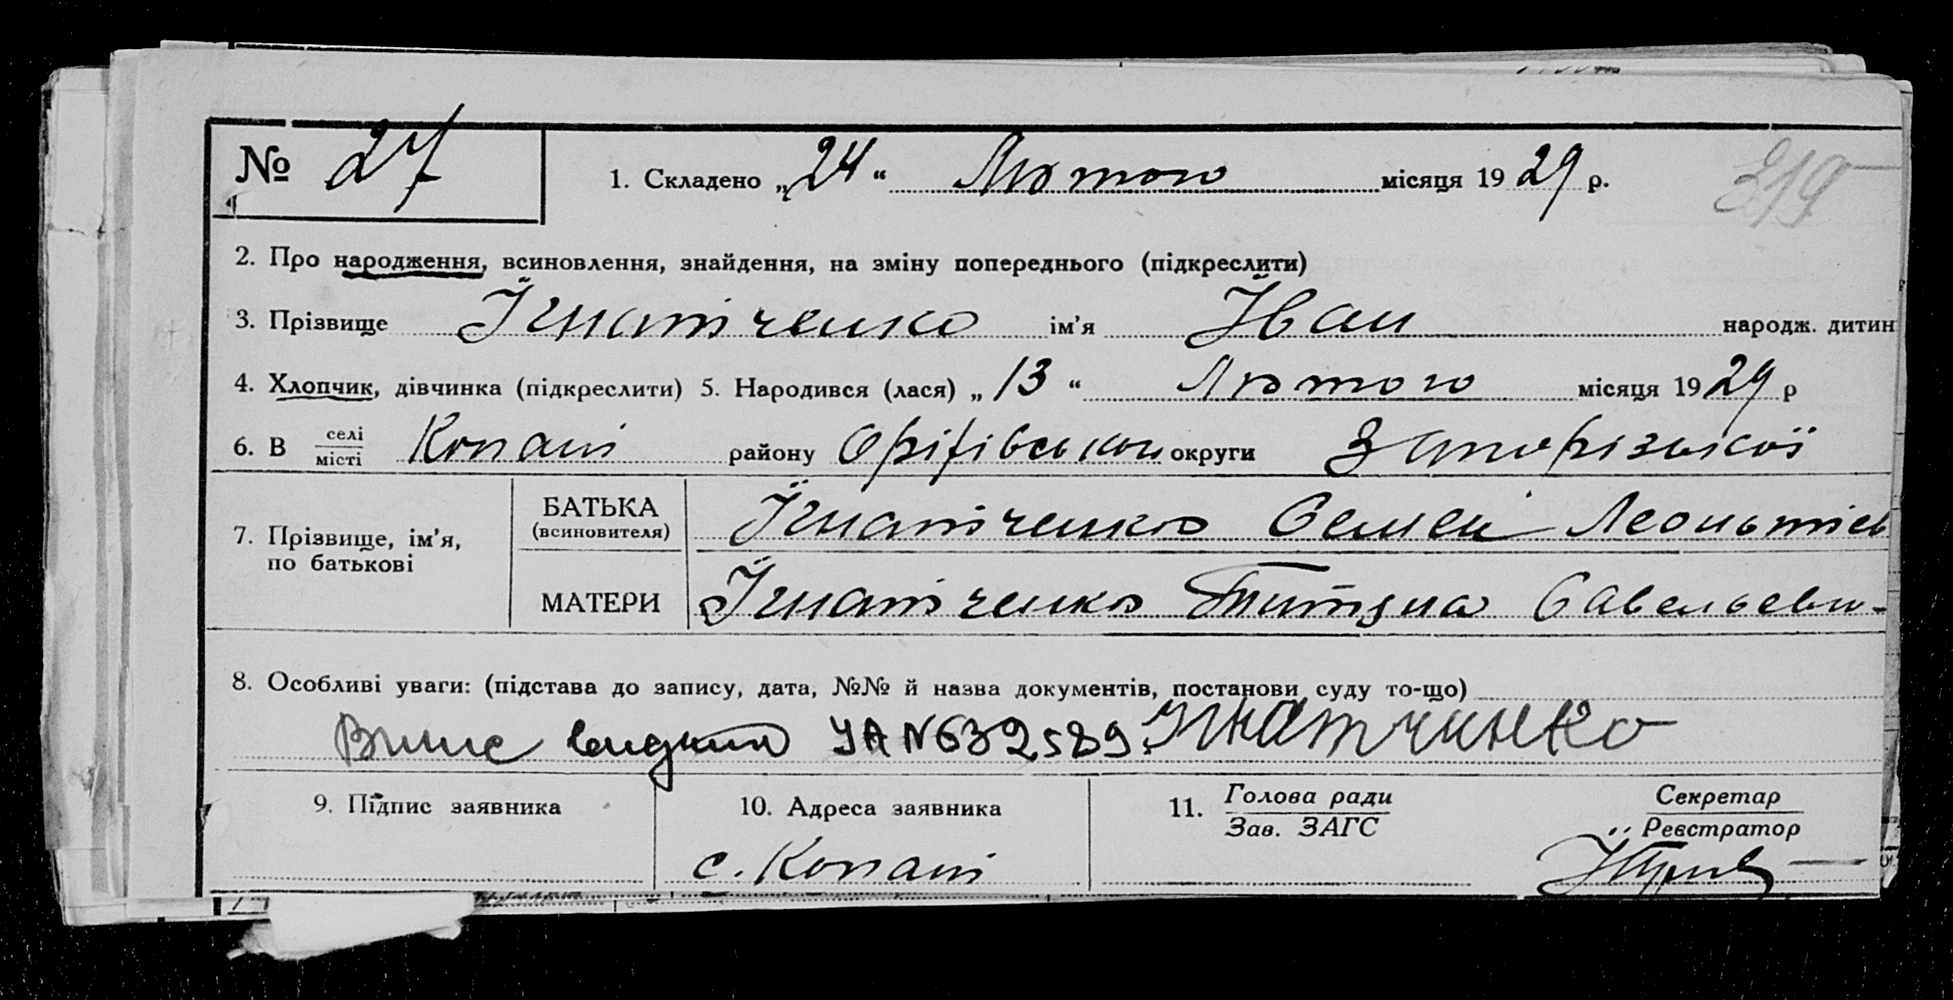 № 27 1. Складено „24“ Лютого місяця 1929 р. 319
2. Про народження, всиновлення, знайдення, на зміну попереднього (підкреслити)
3. Прізвище Ігнатіченко ім’я Іван народж. дитин
4. Хлопчик, дівчинка (підкреслити) 5. Народився (лася) „13“ Лютого місяця 1929 р
6. В селі місті Копані району Оріхівського округи Запорізької
7. Прізвище, ім’я, по батькові
БАТЬКА (всиновителя) Ігнатіченко Семен Леонтіев
МАТЕРИ Ігнатіченко Титяна Савельевн-
8. Особливі уваги: (підстава до запису, дата, №№ й назва документів, постанови суду то-що)
УА №632589 Ігнатченко
9. Підпис заявника 10. Адреса заявника 11. Голова ради Секретар
Зав. ЗАГС Реєстратор
с. Копані